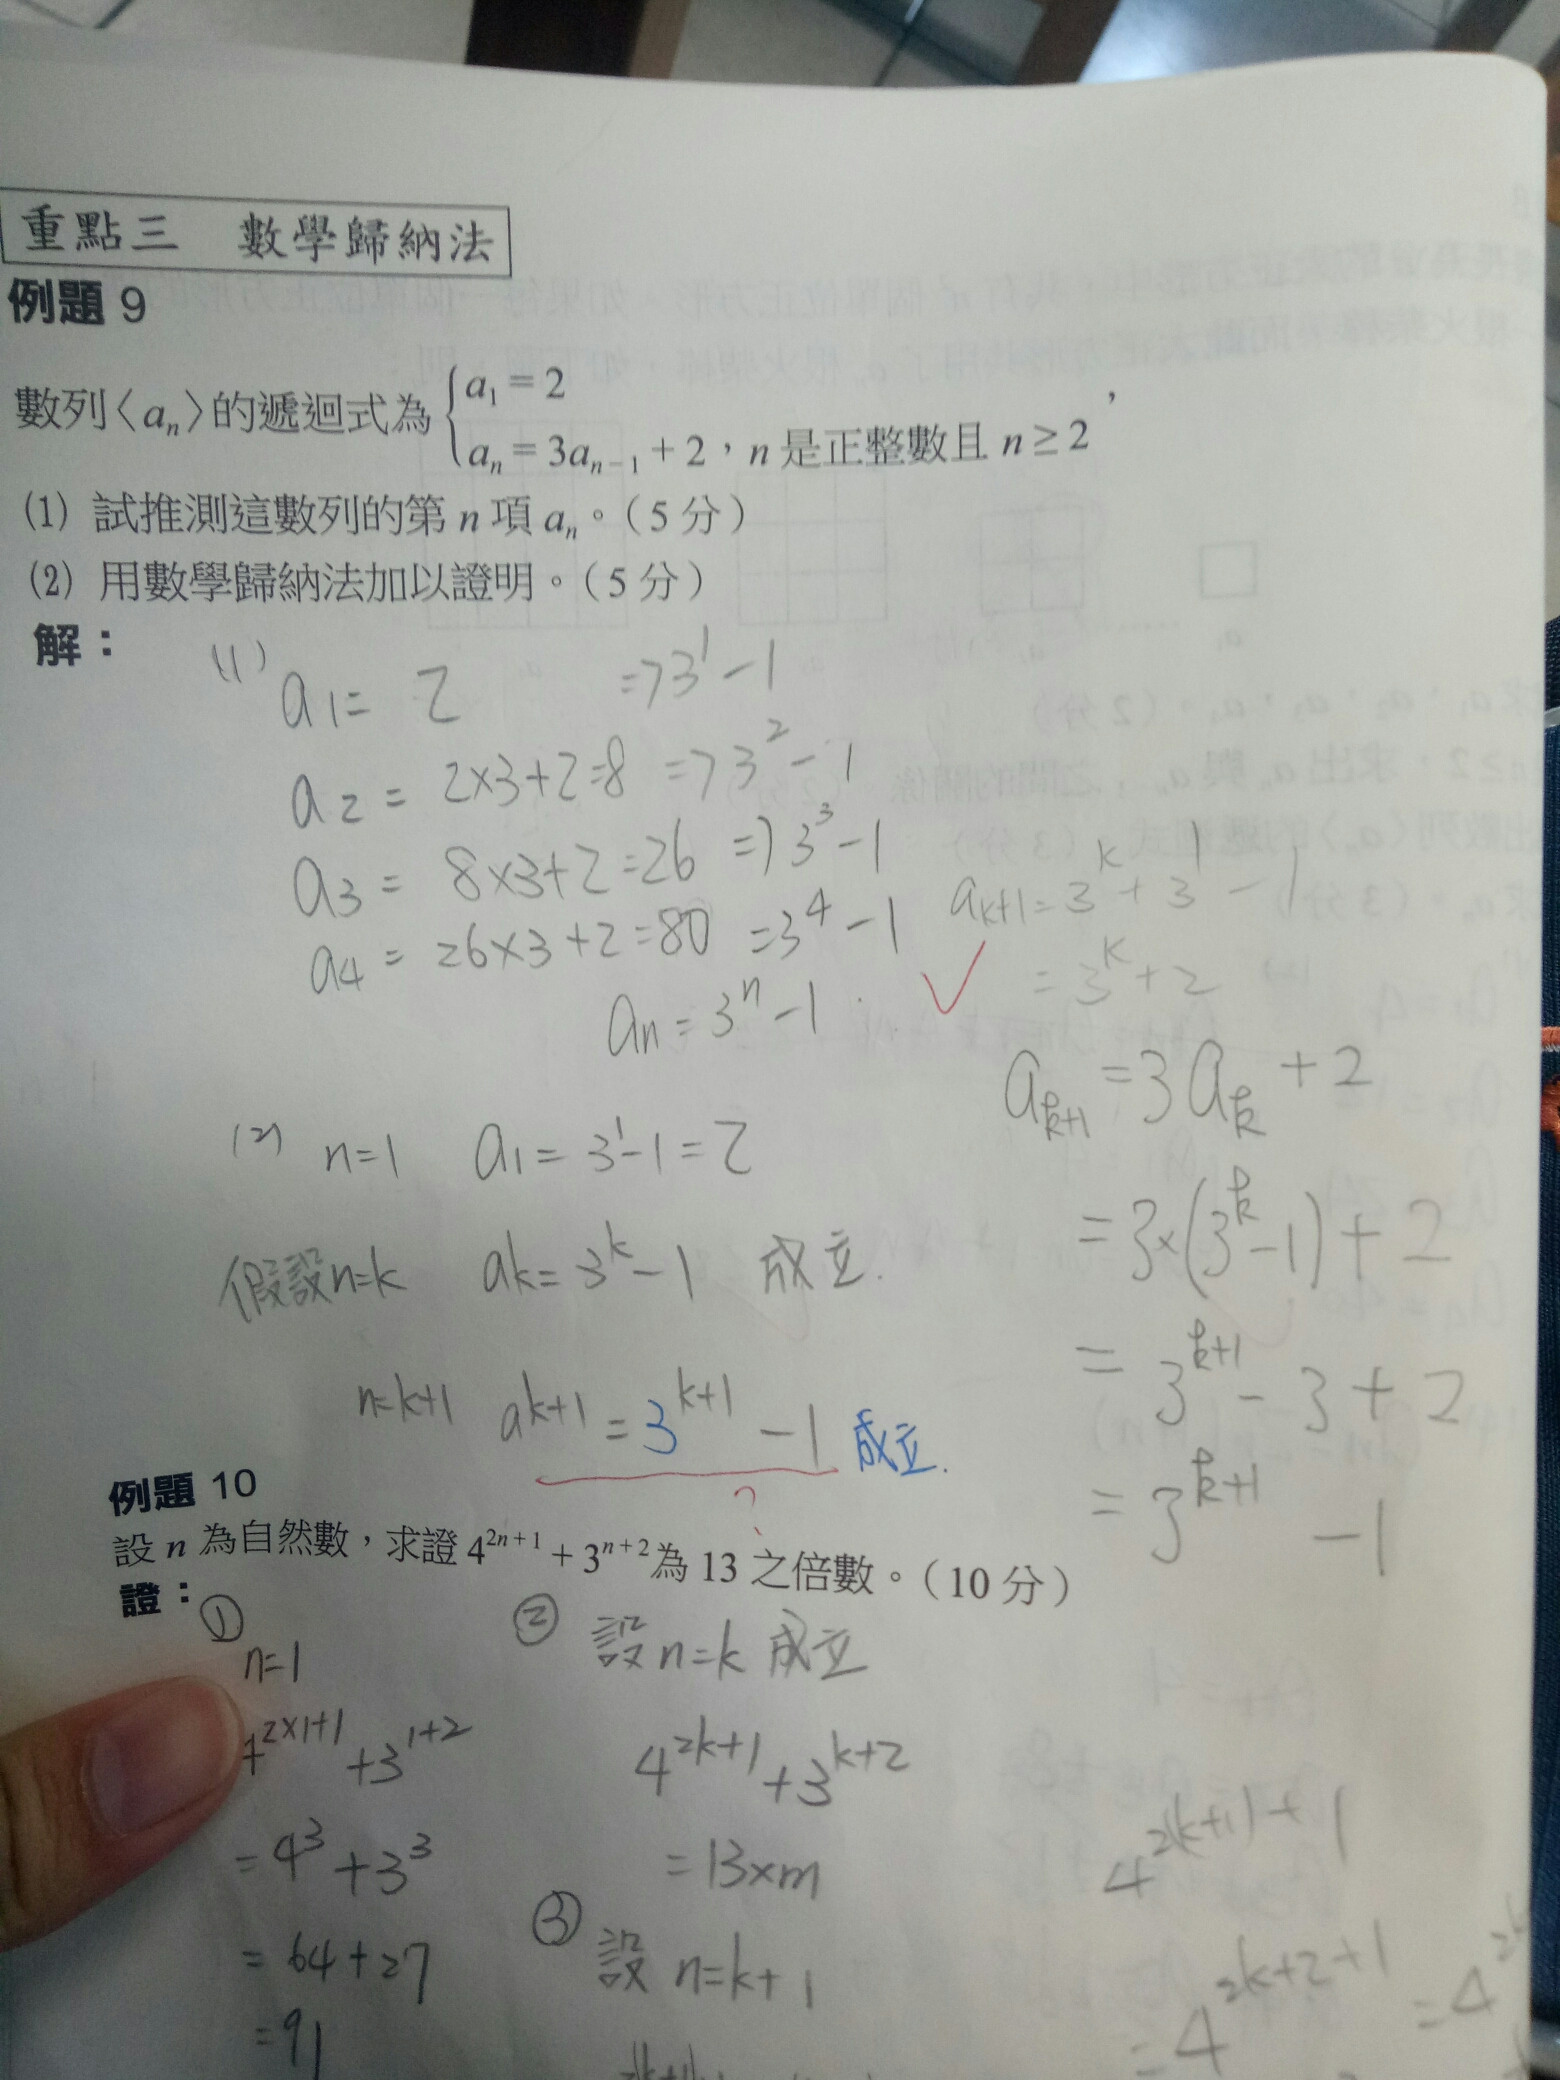 重點三 數學歸納法
例題 9
數列〈aₙ〉的遞迴式為 { a₁ = 2
aₙ = 3aₙ₋₁ + 2，n 是正整數且 n ≥ 2，
(1) 試推測這數列的第 n 項 aₙ。（5 分）
(2) 用數學歸納法加以證明。（5 分）
解：
(1) a₁ = 2 => 3¹ - 1
a₂ = 2×3+2=8 => 3² - 1
a₃ = 8×3+2=26 => 3³ - 1
a₄ = 26×3+2=80 = 3⁴ - 1
aₙ = 3ⁿ - 1
aₖ₊₁ = 3ᵏ + 3¹ - 1
= 3ᵏ + 2
aₖ₊₁ = 3aₖ + 2
= 3×(3ᵏ - 1) + 2
= 3ᵏ⁺¹ - 3 + 2
= 3ᵏ⁺¹ - 1
(2) n=1 a₁ = 3¹ - 1 = 2
假設n=k aₖ = 3ᵏ - 1 成立.
n=k+1 aᵏ⁺¹ = 3ᵏ⁺¹ - 1 成立.
?
例題 10
設 n 為自然數，求證 4²ⁿ⁺¹ + 3ⁿ⁺² 為 13 之倍數。（10 分）
證：
① n=1
4²ˣ¹⁺¹ + 3¹⁺²
= 4³ + 3³
= 64 + 27
= 91
② 設 n=k 成立
4²ᵏ⁺¹ + 3ᵏ⁺²
= 13×m
③ 設 n=k+1
4²⁽ᵏ⁺¹⁾⁺¹
= 4²ᵏ⁺²⁺¹ = 4